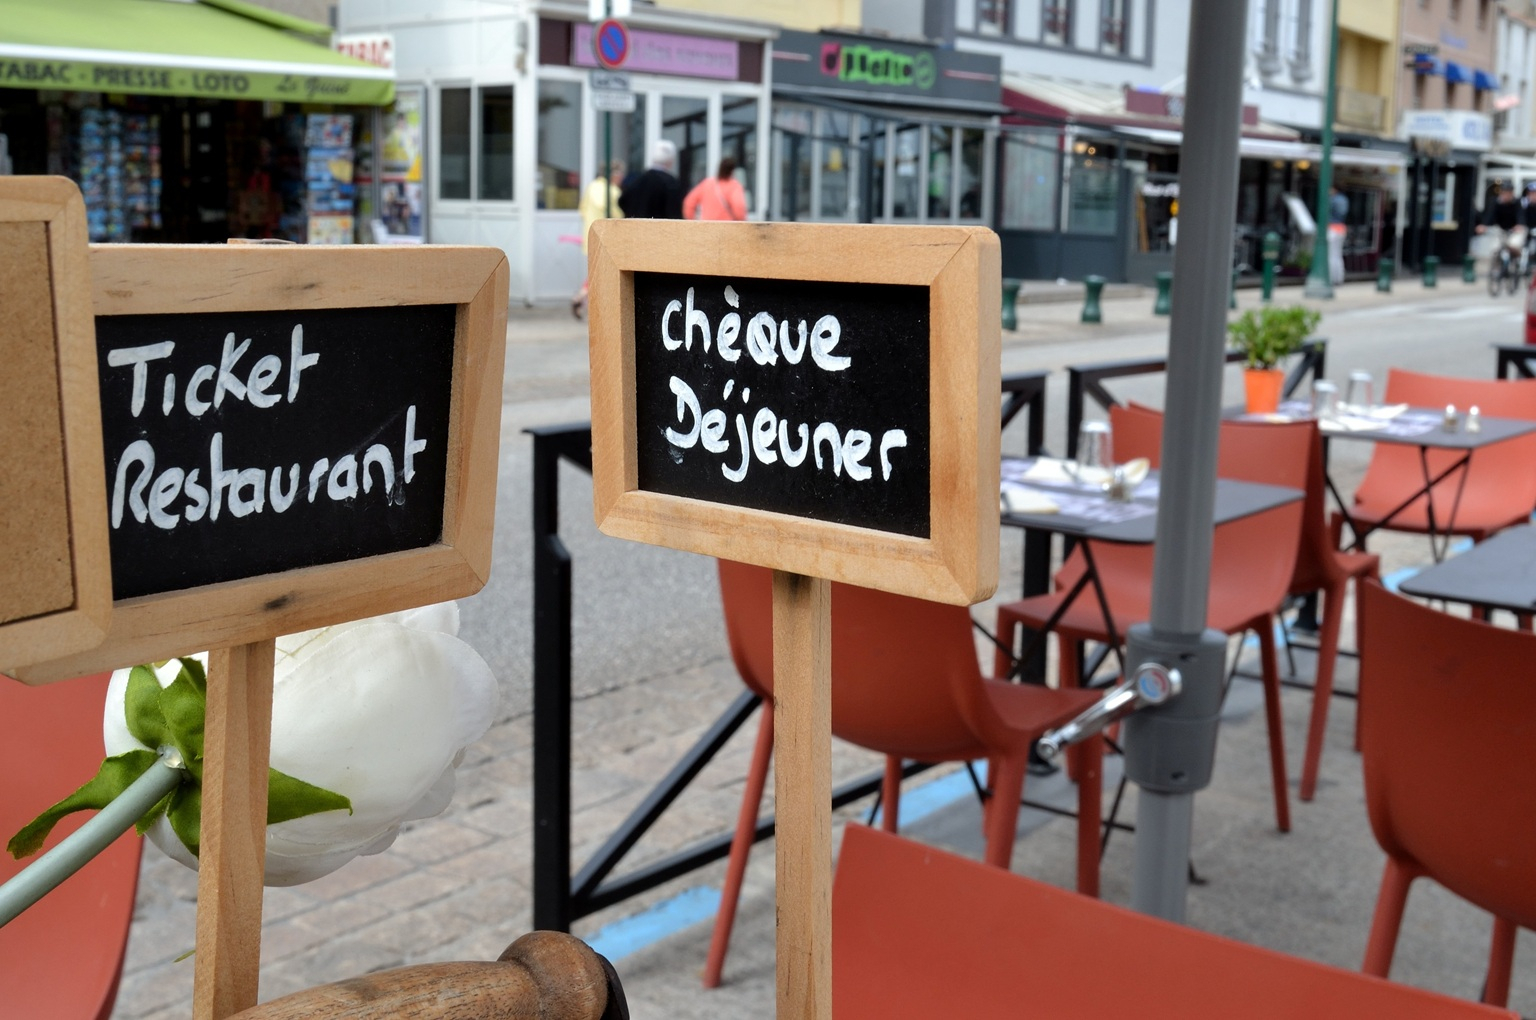 TABAC - PRESSE - LOTO
TABAC
Ticket
Restaurant
chèque
Déjeuner